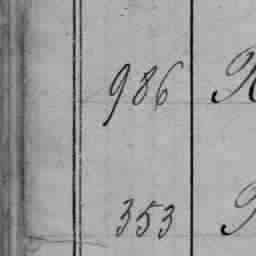 986
353